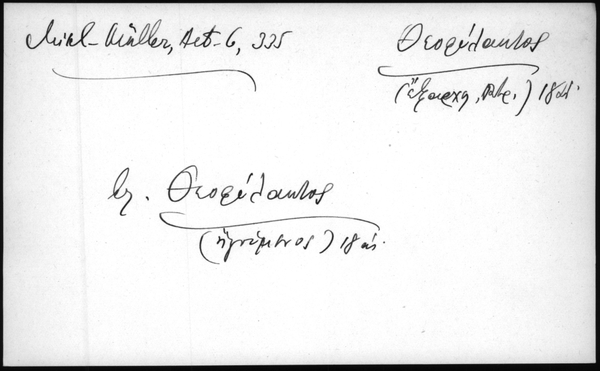 Mikl-Müller, Act-6, 335
Θεοφύλακτος
(ἔξαρχ. πτρ.) 18 αἰ.
βλ. Θεοφύλακτος
(ἡγούμενος) 18 αἰ.